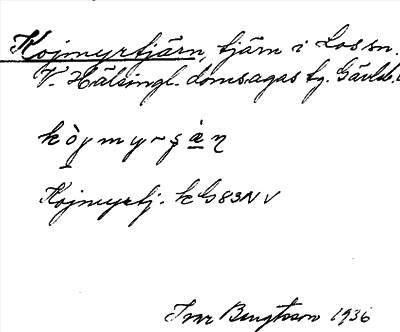 Kojmyrtjärn, tjärn i Los sn.
V. Hälsingl. domsagas tg. Gävleb.
kòjmyrʂàn
Kojmyrtj. k G83NV
Ivar Bengtsson 1936